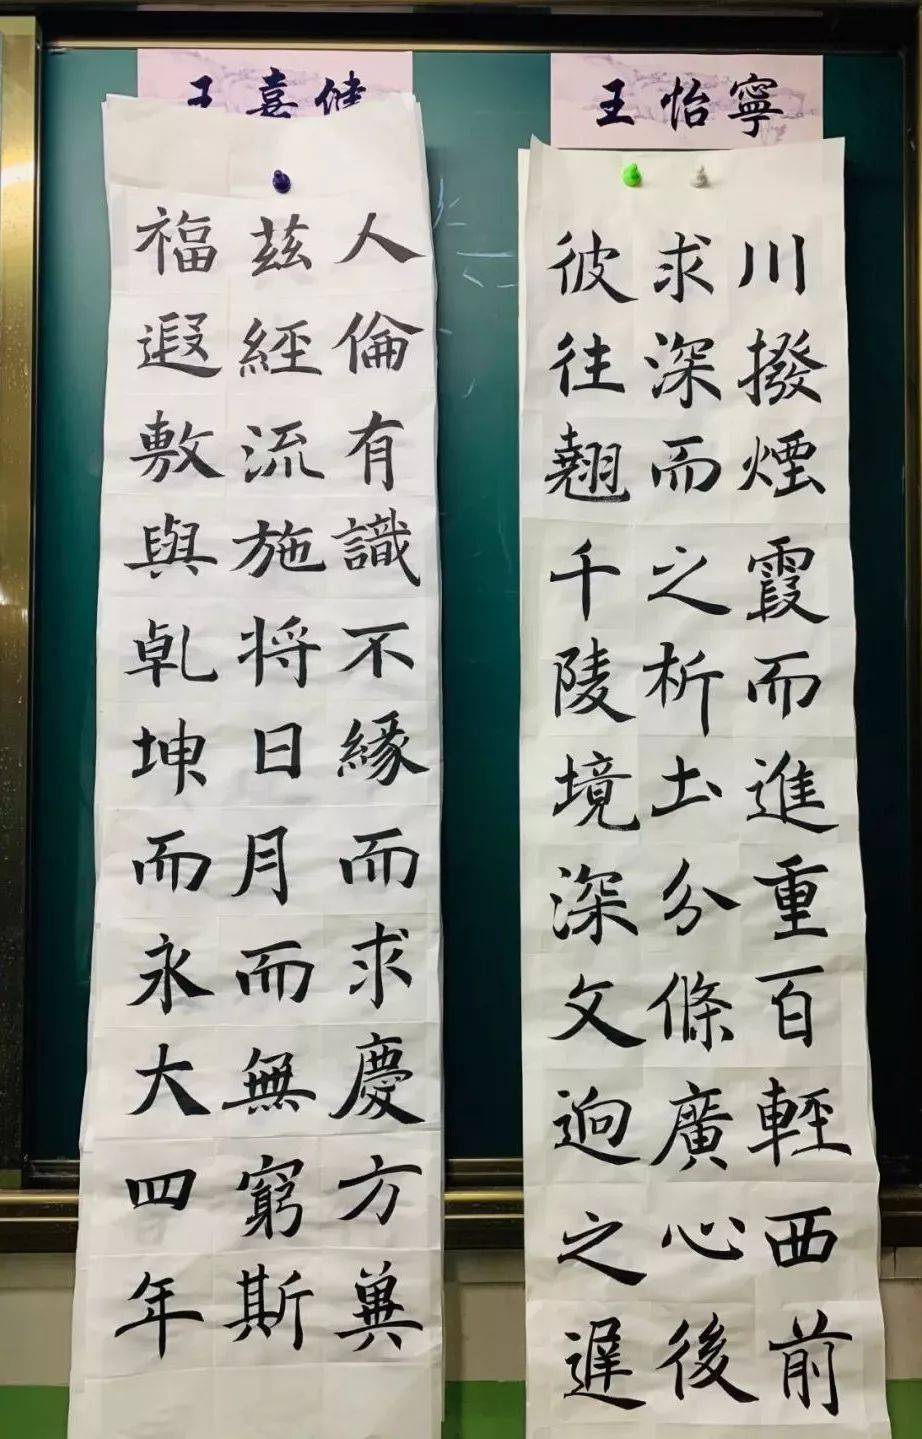 王怡寧
川撥煙霞而進重百輕西前
求深而之析土分條廣心後
彼往翹千陵境深文逈之遲
王喜健
人倫有識不緣而求慶方冀
茲經流施将日月而無窮斯
福遐敷與乾坤而永大四年